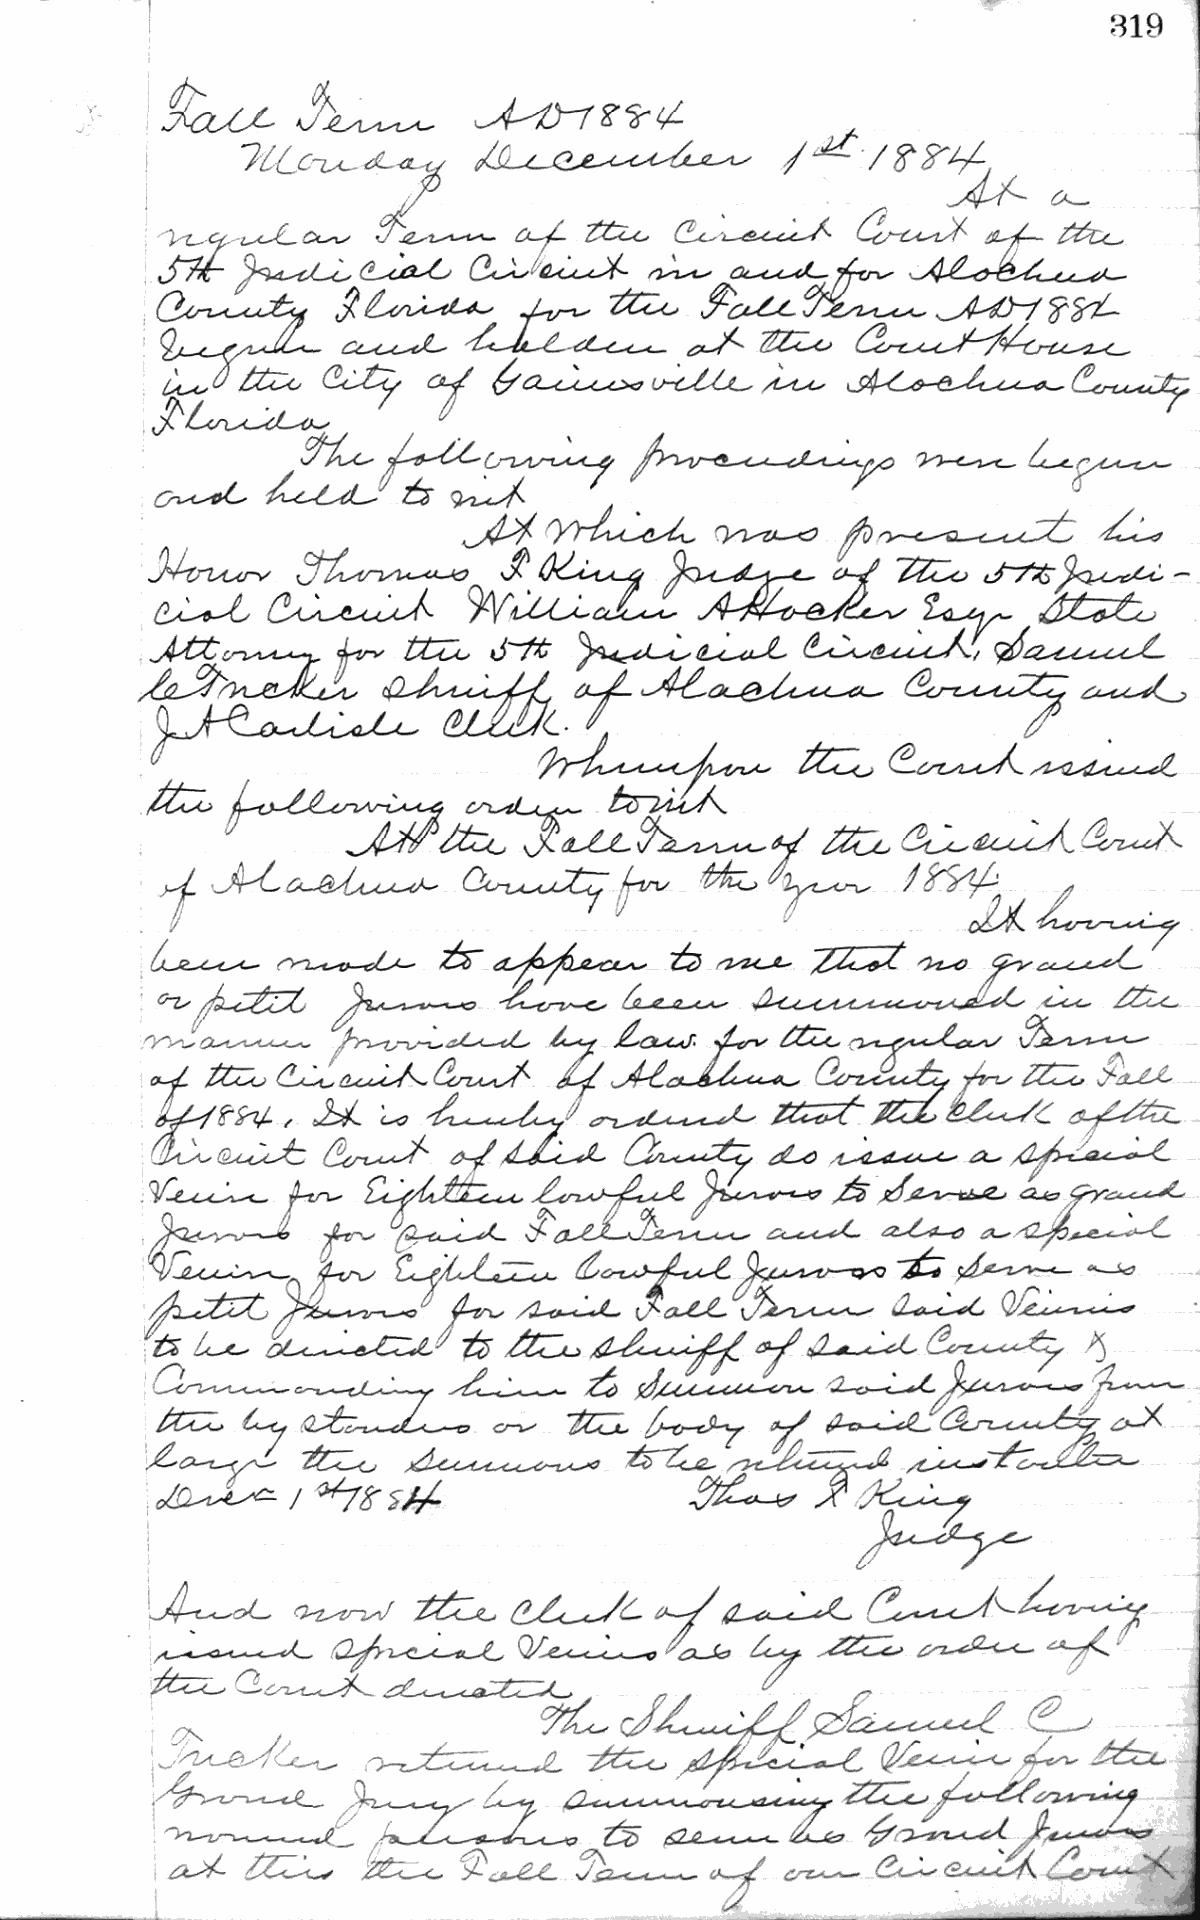 319
Fall Term AD 1884
Monday December 1st 1884
At a
regular Term of the Circuit Court of the
5th Judicial Circuit in and for Alachua
County Florida for the Fall Term AD 1884
begun and holden at the Court House
in the City of Gainesville in Alachua County
Florida
The following proceedings were begun
and held to wit
At which was present his
Honor Thomas F King Judge of the 5th Judi-
cial Circuit William A Hocker Esqr State
Attorney for the 5th Judicial Circuit, Samuel
C Tucker Sheriff of Alachua County and
J A Carlisle Clerk.
Whereupon the Court issued
the following order towit
At the Fall Term of the Circuit Court
of Alachua County for the year 1884.
It having
been made to appear to me that no grand
or petit Jurors have been summoned in the
manner provided by law for the regular Term
of the Circuit Court of Alachua County for the Fall
of 1884, It is hereby ordered that the Clerk of the
Circuit Court of said County do issue a special
Venire for Eighteen lawful Jurors to Serve as grand
Jurors for said Fall Term and also a special
Venire for Eighteen lawful Jurors to Serve as
petit Jurors for said Fall Term said Venires
to be directed to the sheriff of said County &
Commanding him to Summon said Jurors from
the bystanders or the body of said County at
large the summons to be returned instanter
Decr 1st 1884 Thos F King
Judge
And now the Clerk of said Court having
issued special Venires as by the order of
the Court directed
The Sheriff Samuel C
Tucker returned the special Venire for the
Grand Jury by summonsing the following
named persons to serve as Grand Jurors
at this the Fall Term of our Circuit Court